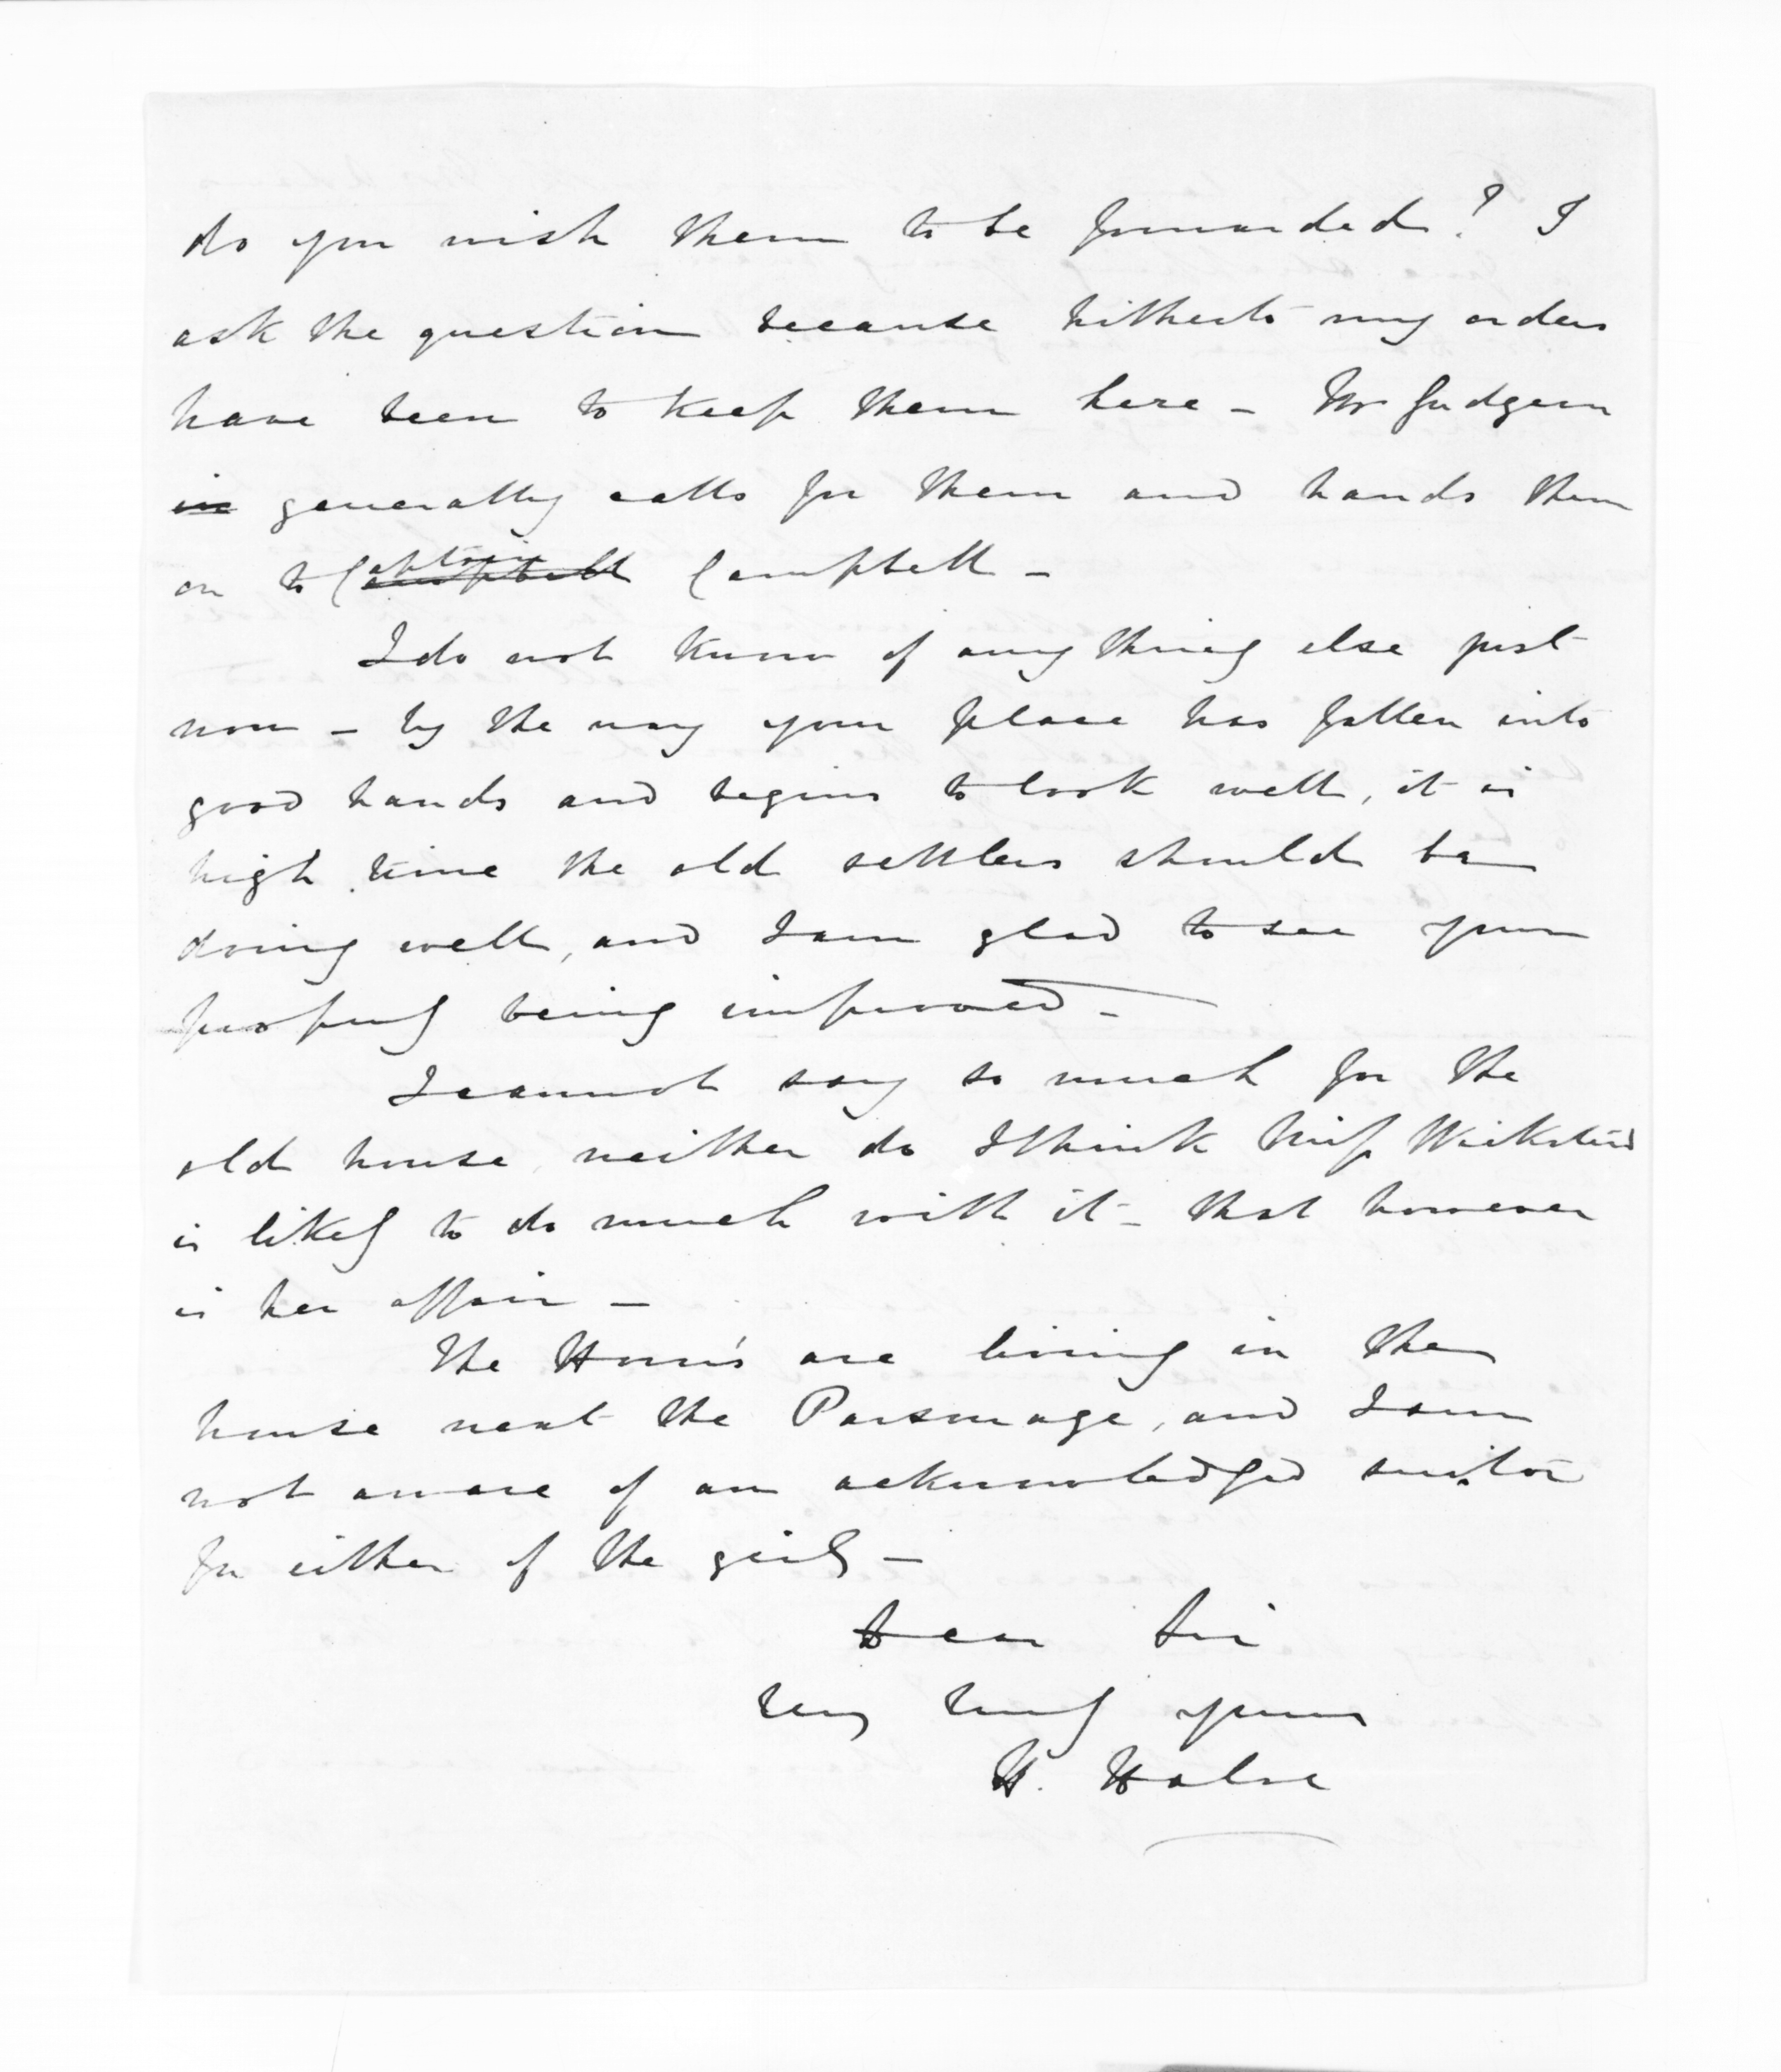 do you wish them to be forwarded? I
ask the question because hitherto my orders
have been to keep them here - Mr Gudgeon
in generally calls for them and hands them
on to Captain Campbell Campbell -
I do not know of any thing else just
now - by the way your place has fallen into
good hands and begins to look well, it is
high time the old settlers should be
doing well, and I am glad to see your
property being improved -
I cannot say so much for the
old house neither do I think Miss Wicksteed
is likely to do much with it - that however
is her affair -
The are living in the
house next the Parsonage, and I am
not aware of an acknowledged suitor
for either of the girls -
Dear Sir
Very truly yours
H. Halse